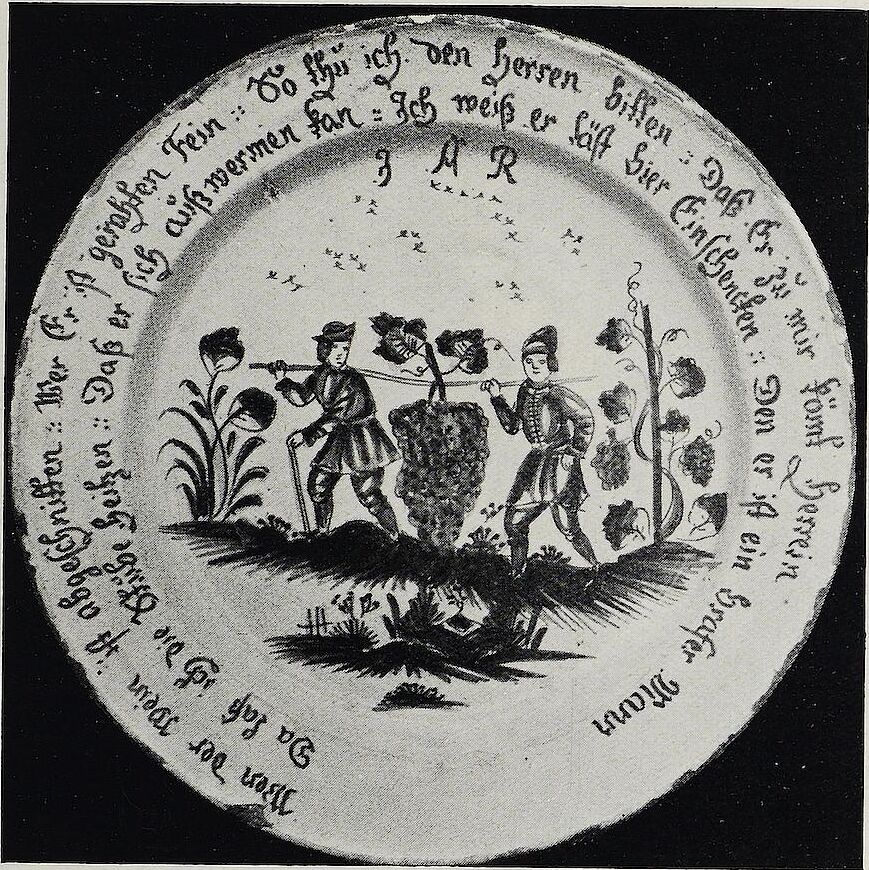 Wen der Wein ist abgeschnitten :: Wer Er ist gerahten Fein :: So thü ich den Herren bitten :: Daß Er zü mir kömt herein
Da laß ich die Stübe heitzen :: Daß er sich aüßwermen kan :: Ich weiß er läst hier Einschencken :: Den er ist ein brafer Mann
J A R